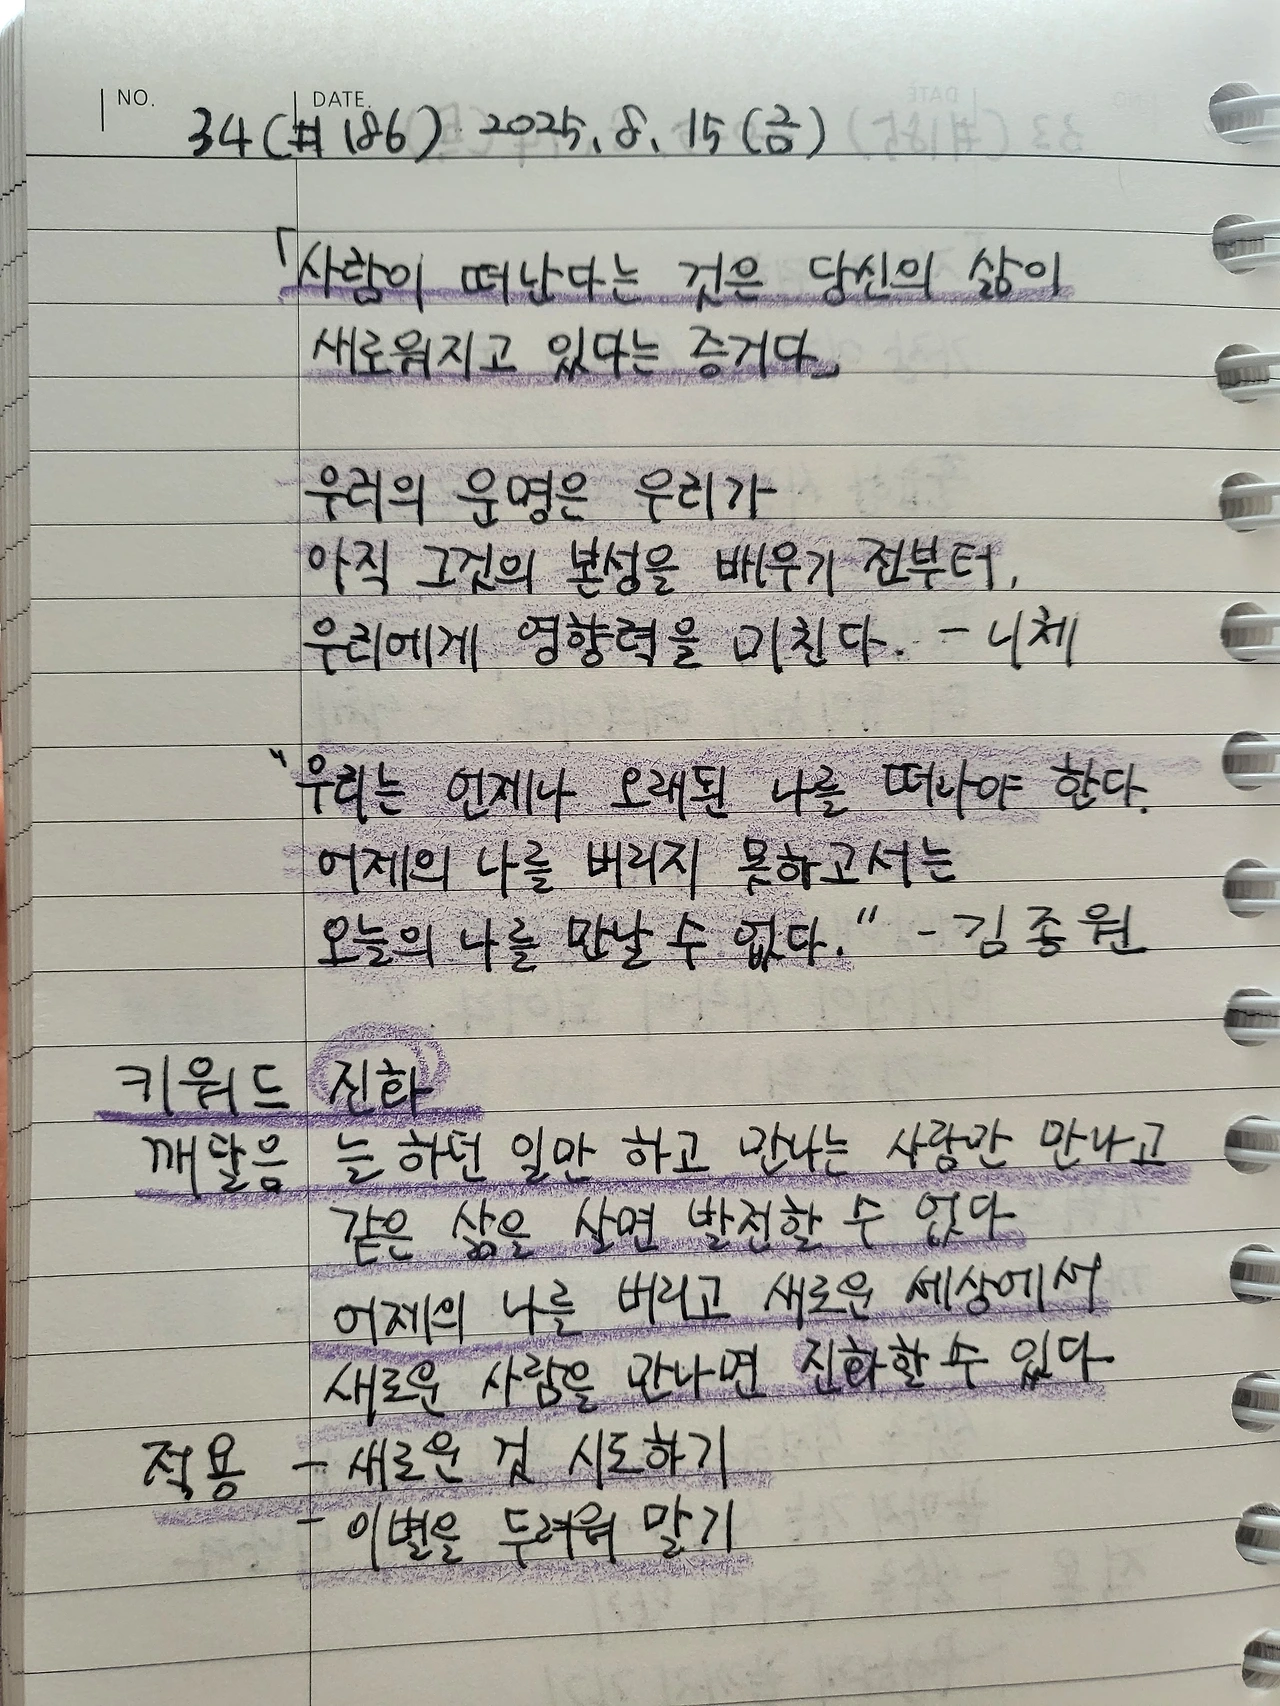 NO. DATE.
34(#186) 2025. 8. 15(금)
「사람이 떠난다는 것은 당신의 삶이
새로워지고 있다는 증거다」
우리의 운명은 우리가
아직 그것의 본성을 배우기 전부터,
우리에게 영향력을 미친다. - 니체
"우리는 언제나 오래된 나를 떠나야 한다.
어제의 나를 버리지 못하고서는
오늘의 나를 만날 수 없다." - 김종원
키워드 진화
깨달음 늘 하던 일만 하고 만나는 사람만 만나고
같은 삶을 살면 발전할 수 없다
어제의 나를 버리고 새로운 세상에서
새로운 사람을 만나면 진화할 수 있다
적용 - 새로운 걸 시도하기
- 이별을 두려워 말기